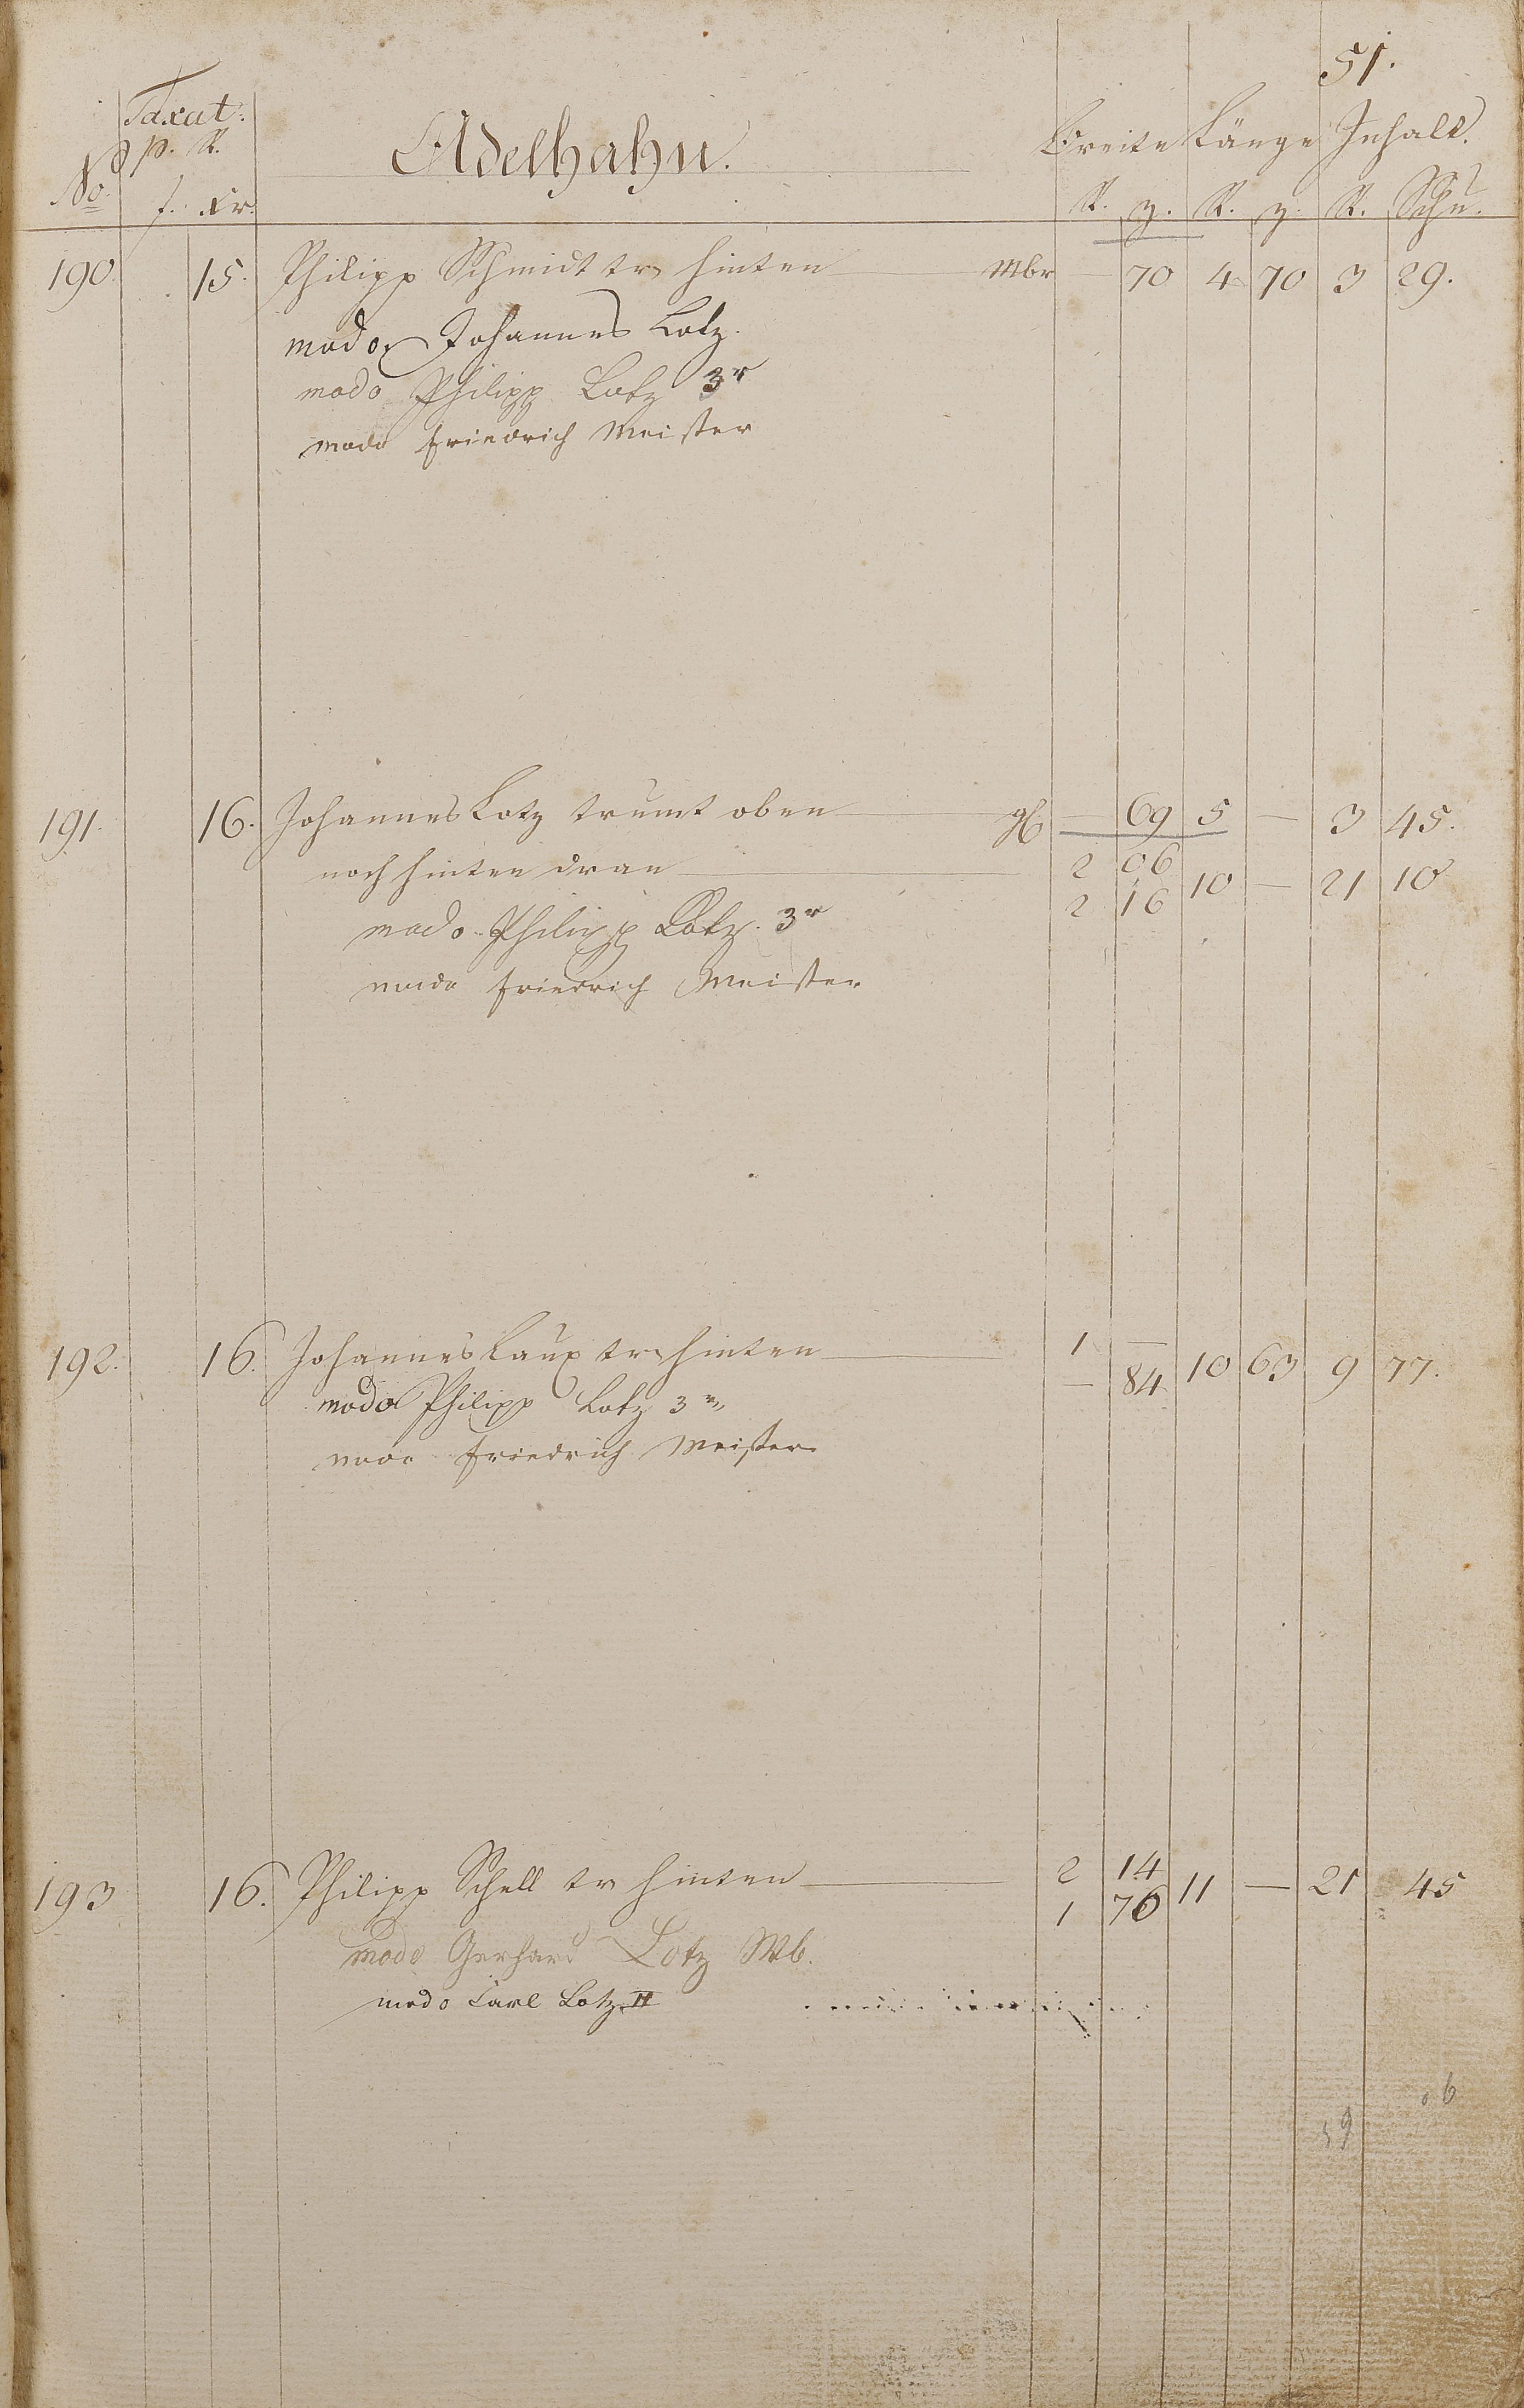 51.
Taxat:
p. R.
No. f. Xr.
Adelhahn.
Breite Länge Inhalt.
R. z. R. z. R. Schu.
190. 15. Philipp Schmidt tr. hinten Mbr — 70 4 70 3 29.
modo Johannes Lotz.
modo Philipp Lotz 3r
modo Friedrich Meister
191. 16. Johannes Lotz trumt oben — 69 5 — 3 45.
noch hinten dran 2 06
2 16 10 — 21 10
modo Philipp Lotz. 3r
modo Friedrich Meister
192. 16. Johannes Laux tr. hinten 1 —
— 84 10 63 9 77.
modo Philipp Lotz 3r
modo Friedrich Meister
193 16. Philipp Schell tr. hinten 2 14
1 76 11 — 21 45
modo Gerhard Lotz Wb.
modo Carl Lotz II